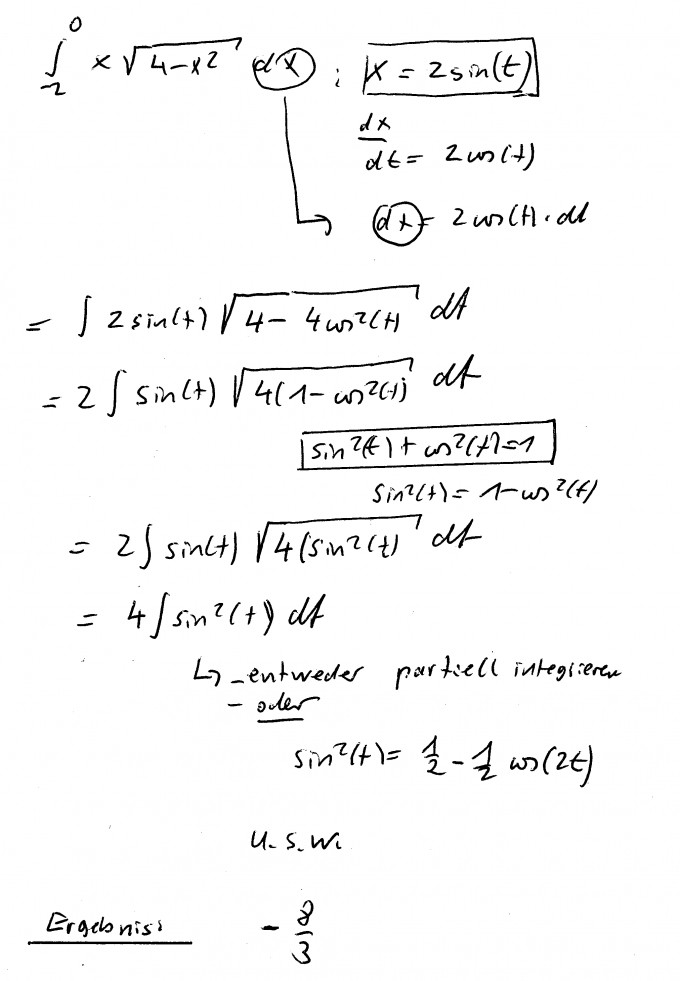 ∫_{-2}^{0} x √(4-x²) dx ; x = 2 sin(t)
dx/dt = 2 cos(t)
dx = 2 cos(t) · dt
= ∫ 2 sin(t) √(4 - 4 cos²(t)) dt
= 2 ∫ sin(t) √(4(1 - cos²(t)) dt
sin²(t) + cos²(t) = 1
sin²(t) = 1 - cos²(t)
= 2 ∫ sin(t) √(4(sin²(t)) dt
= 4 ∫ sin²(t) dt
↳ - entweder partiell integrieren
- oder
sin²(t) = 1/2 - 1/2 cos(2t)
u.s.w.
Ergebnis: - 8/3